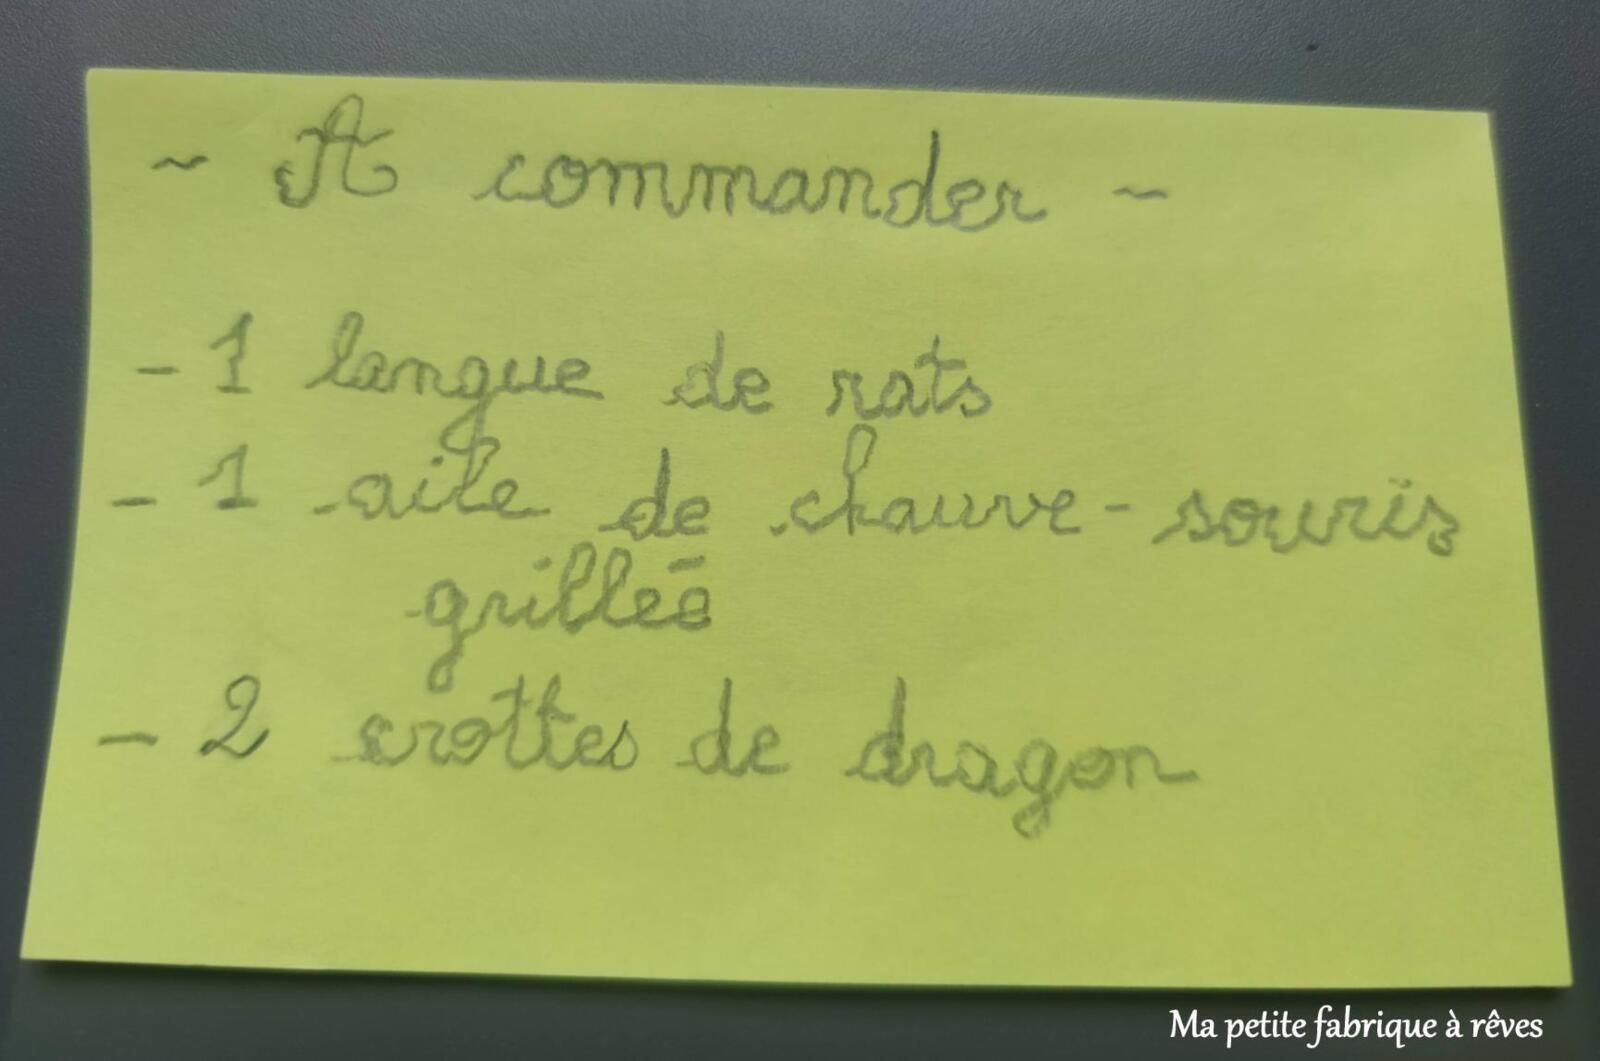 ~ A commander ~
- 1 langue de rats
- 1 aile de chauve-souris
grillée
- 2 crottes de dragon
Ma petite fabrique à rêves